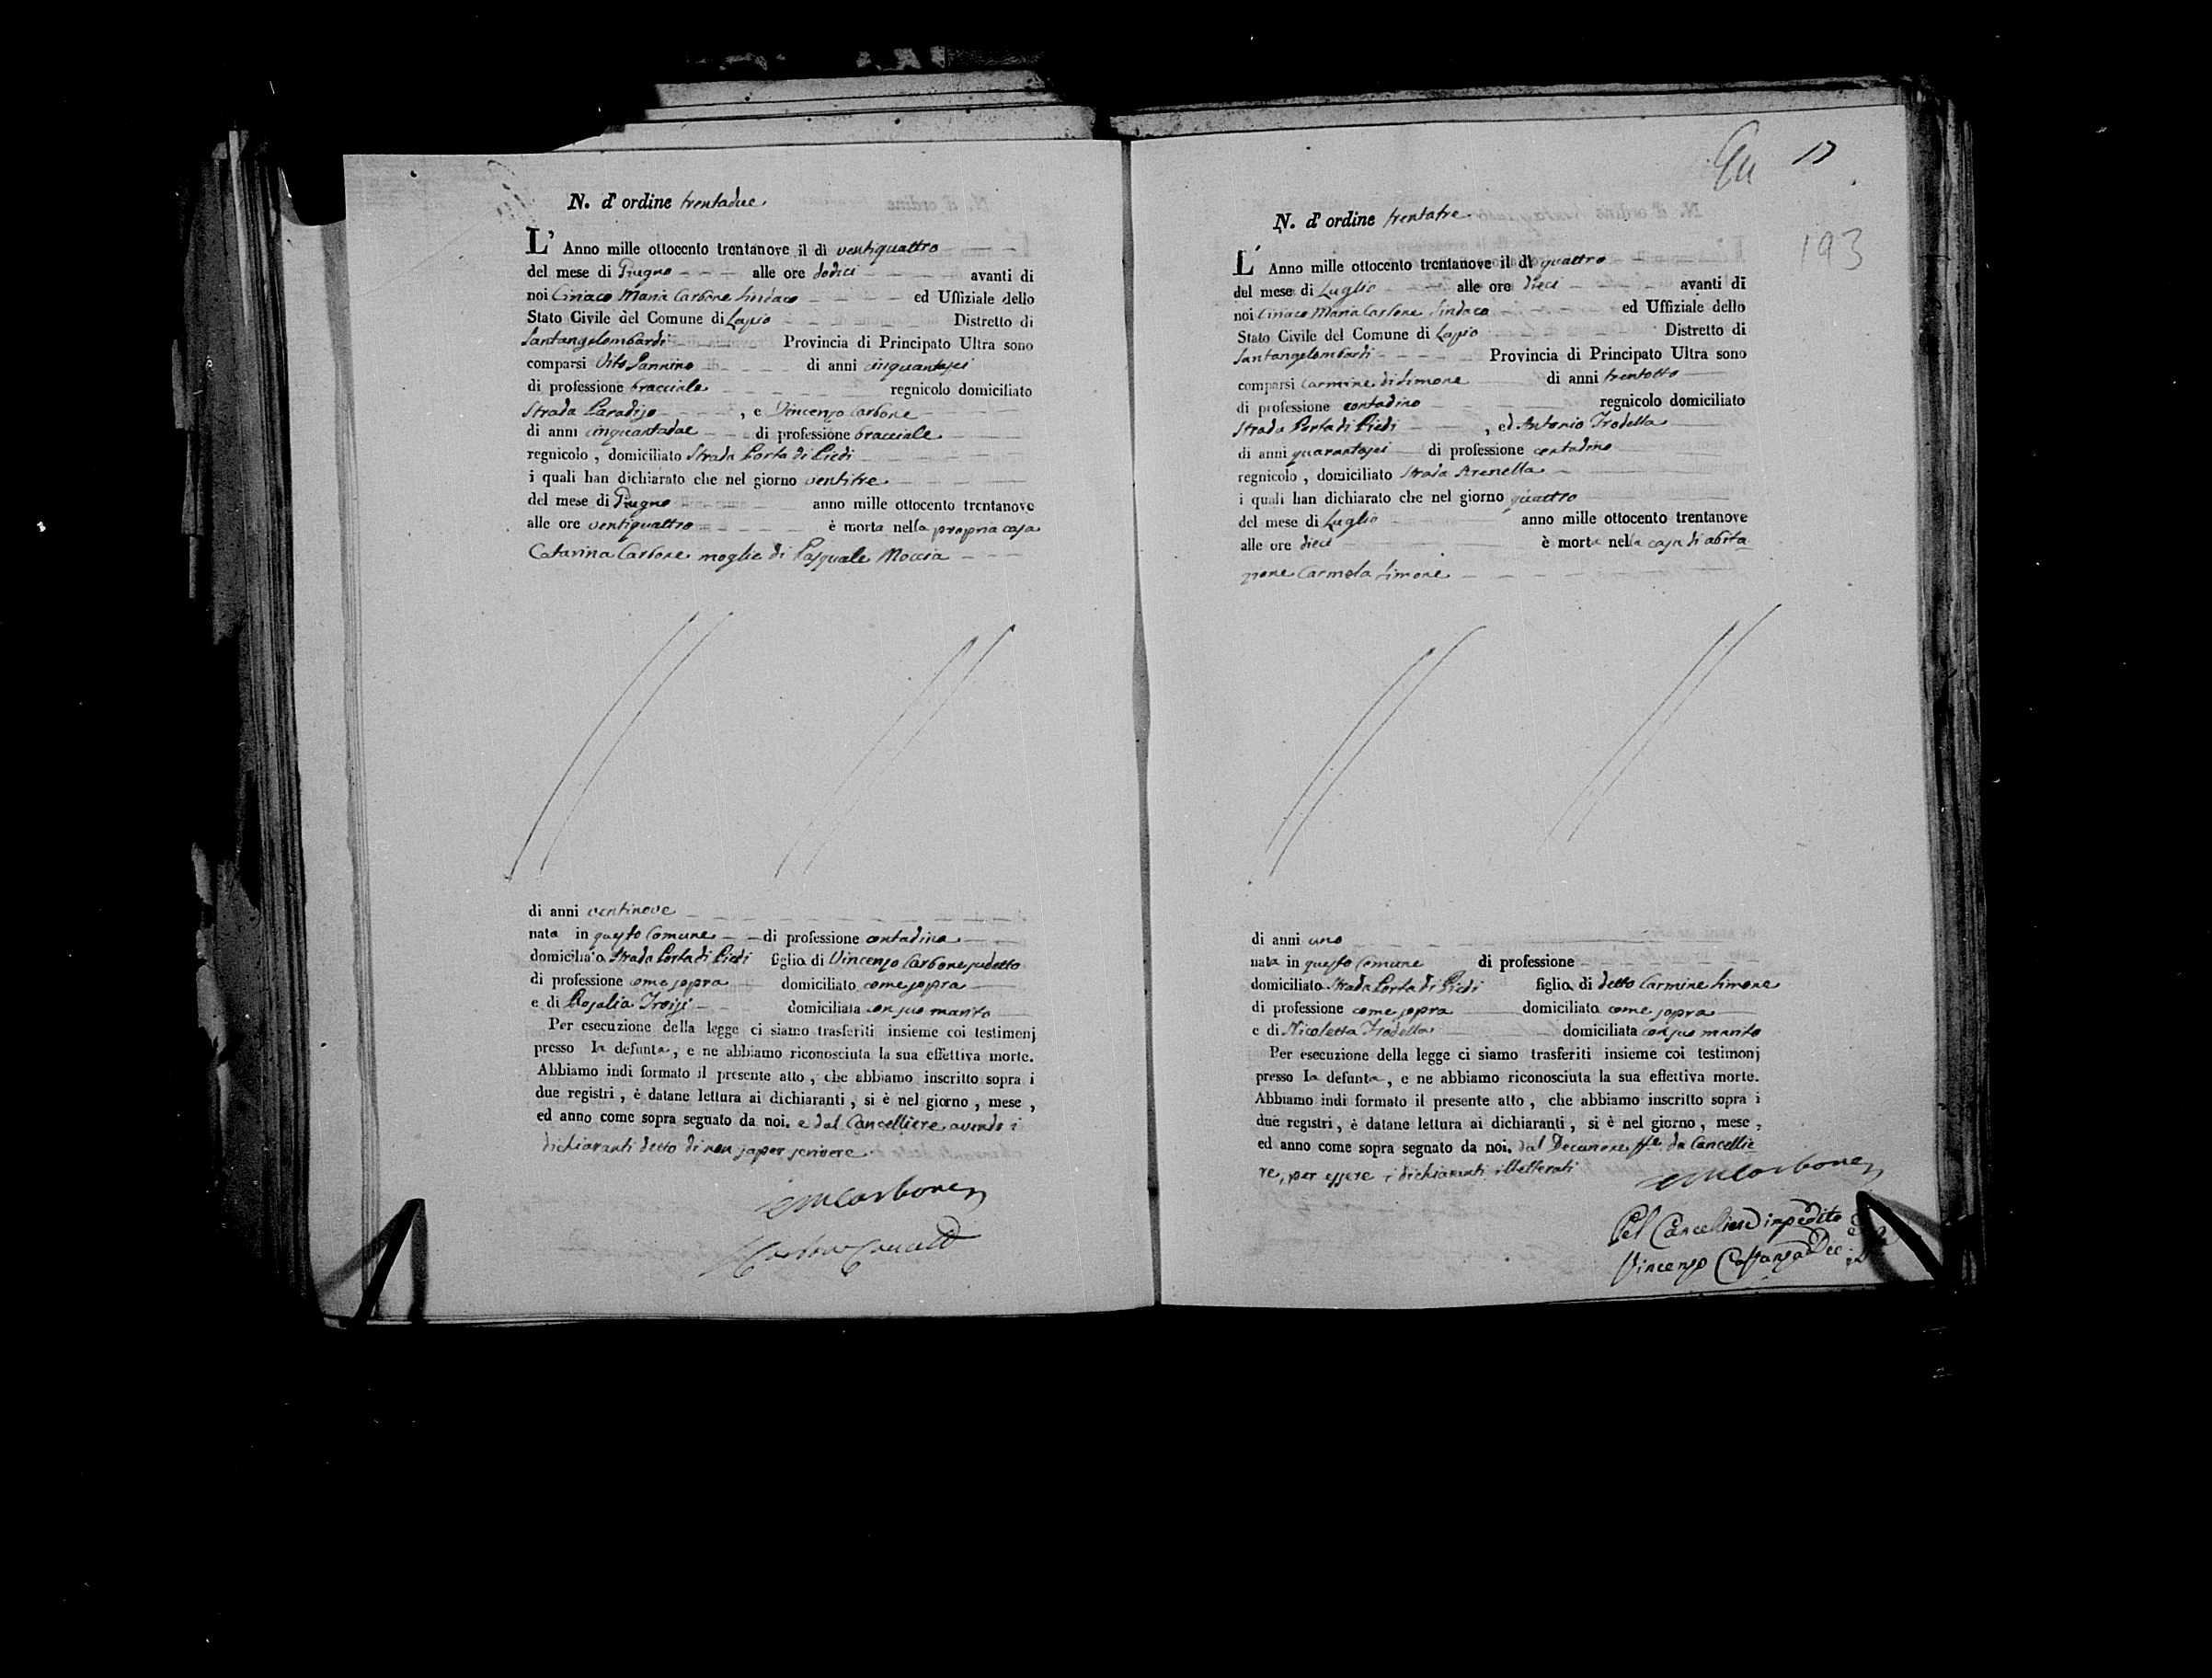 N. d'ordine trentadue
L'Anno mille ottocento trentanove il dì ventiquattro
del mese di Giugno alle ore dodici avanti di
noi Ciriaco Maria Carbone Sindaco ed Uffiziale dello
Stato Civile del Comune di Lapio Distretto di
Santangelombardi Provincia di Principato Ultra sono
comparsi Vito Iannino di anni cinquantasei
di professione bracciale regnicolo domiciliato
Strada Paradiso, e Vincenzo Carbone
di anni cinquantadue di professione bracciale
regnicolo, domiciliato Strada Porta di Piedi
i quali han dichiarato che nel giorno ventitre
del mese di Giugno anno mille ottocento trentanove
alle ore ventiquattro è morta nella propria casa
Catarina Carbone moglie di Pasquale Moccia
di anni ventinove
nata in questo Comune di professione contadina
domiciliato Strada Porta di Piedi figlia di Vincenzo Carbone sudetto
di professione come sopra domiciliato come sopra
e di Rosalia Troisi domiciliata con suo marito
Per esecuzione della legge ci siamo trasferiti insieme coi testimonj
presso la defunta, e ne abbiamo riconosciuta la sua effettiva morte.
Abbiamo indi formato il presente atto, che abbiamo inscritto sopra i
due registri, è datane lettura ai dichiaranti, si è nel giorno, mese,
ed anno come sopra segnato da noi. e dal Cancelliere avendo i
dichiaranti detto di non saper scrivere
CMCarbone
17
193
N. d'ordine trentatre
L'Anno mille ottocento trentanove il dì quattro
del mese di Luglio alle ore dieci avanti di
noi Ciriaco Maria Carbone Sindaco ed Uffiziale dello
Stato Civile del Comune di Lapio Distretto di
Santangelombardi Provincia di Principato Ultra sono
comparsi Carmine di Simone di anni trentotto
di professione contadino regnicolo domiciliato
Strada Porta di Piedi, ed Antonio Trodella
di anni quarantasei di professione contadino
regnicolo, domiciliato Strada Arenella
i quali han dichiarato che nel giorno quattro
del mese di Luglio anno mille ottocento trentanove
alle ore dieci è morta nella casa di abita
zione Carmela Simone
di anni uno
nata in questo Comune di professione
domiciliato Strada Porta di Piedi figlia di detto Carmine Simone
di professione come sopra domiciliato come sopra
e di Nicoletta Trodella domiciliata con suo marito
Per esecuzione della legge ci siamo trasferiti insieme coi testimonj
presso la defunta, e ne abbiamo riconosciuta la sua effettiva morte.
Abbiamo indi formato il presente atto, che abbiamo inscritto sopra i
due registri, è datane lettura ai dichiaranti, si è nel giorno, mese,
ed anno come sopra segnato da noi. dal Decurione ff.e da Cancellie
re, per essere i dichiaranti illetterati
CMCarbone
Pel Cancelliere impedito
Vincenzo Costanza Dec